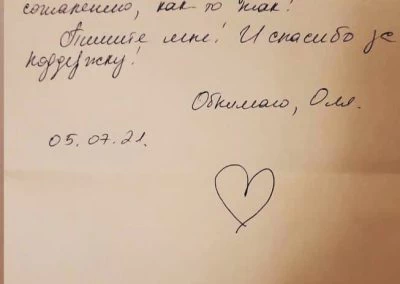 сожалению, как то так!
Пишите мне! И спасибо за
поддержку!
Обнимаю, Оля.
05.07.21.